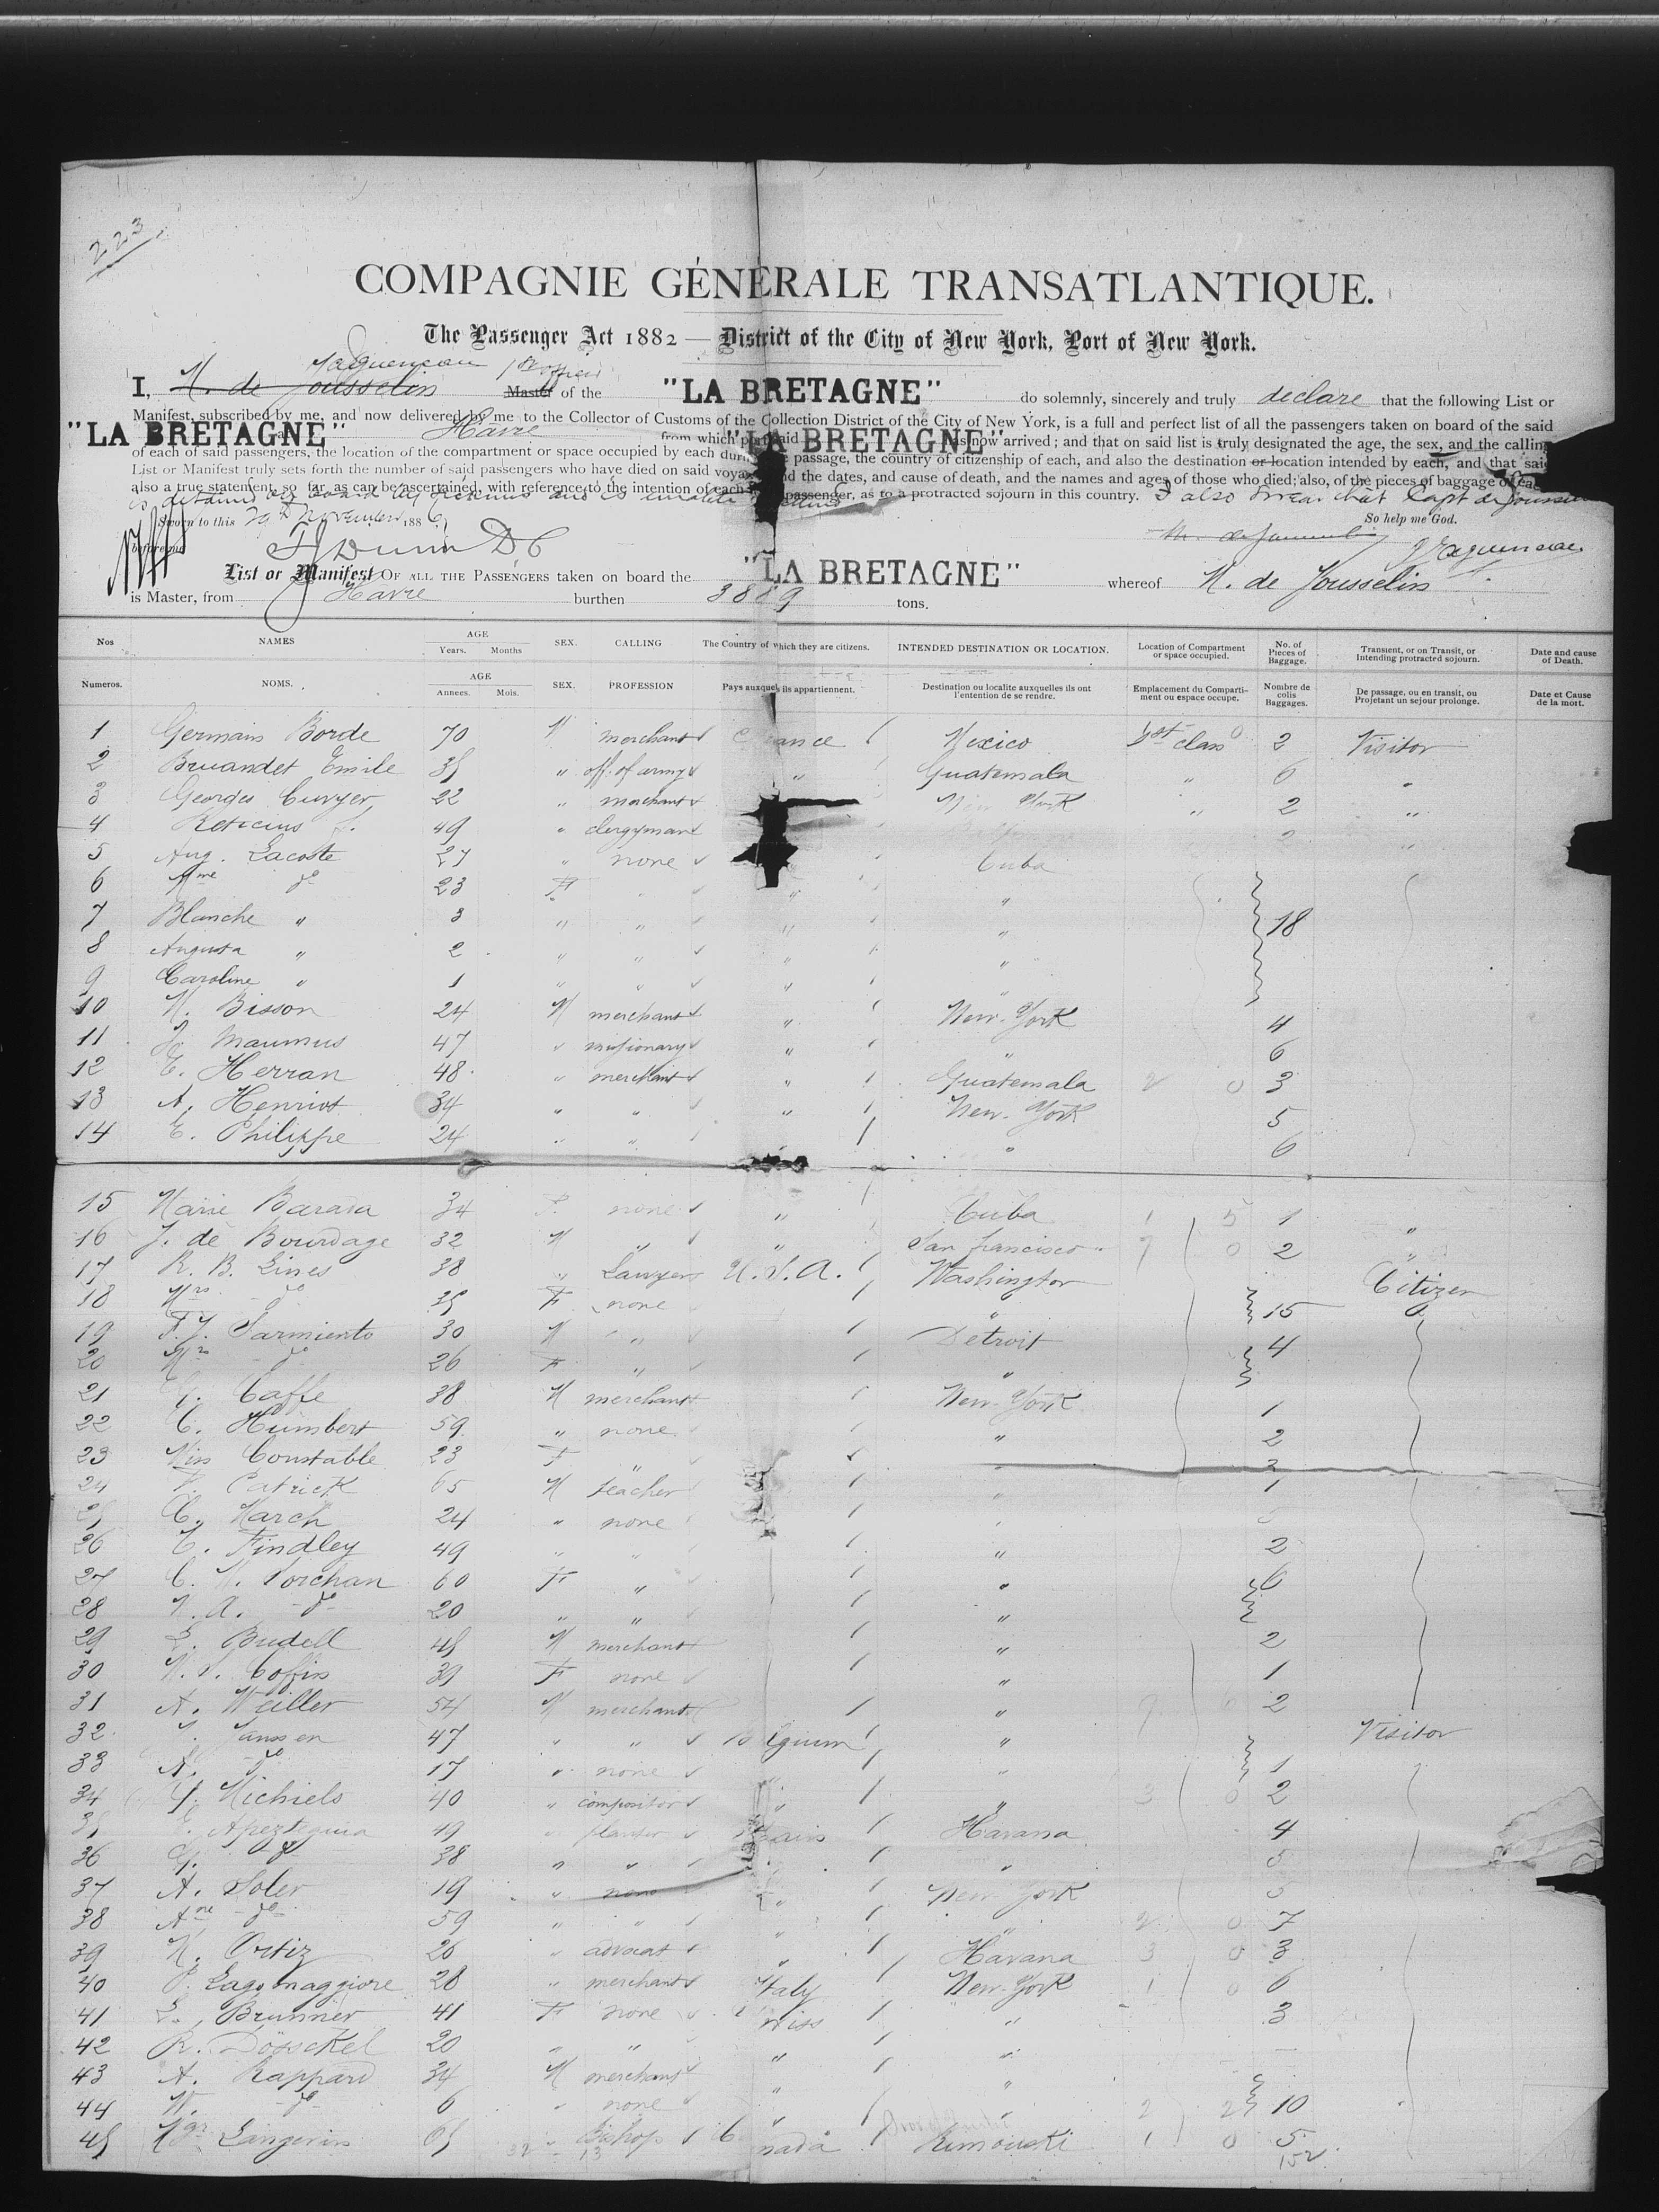 223
COMPAGNIE GÉNÉRALE TRANSATLANTIQUE.
The Passenger Act 1882 — District of the City of New York, Port of New York.
I, M. de Jousselin Master of the "LA BRETAGNE" do solemnly, sincerely and truly declare that the following List or
Manifest, subscribed by me, and now delivered by me to the Collector of Customs of the Collection District of the City of New York, is a full and perfect list of all the passengers taken on board of the said
"LA BRETAGNE" Havre from which port said "LA BRETAGNE" has now arrived; and that on said list is truly designated the age, the sex, and the calling
of each of said passengers, the location of the compartment or space occupied by each during the passage, the country of citizenship of each, and also the destination or location intended by each, and that said
List or Manifest truly sets forth the number of said passengers who have died on said voyage and the dates, and cause of death, and the names and ages of those who died; also, of the pieces of baggage of each
also a true statement, so far as can be ascertained, with reference to the intention of each passenger, as to a protracted sojourn in this country. I also swear that Capt de Jousselin
is detained on board by sickness and is unable
So help me God.
Sworn to this 29th November 1886
before me
List or Manifest OF ALL THE PASSENGERS taken on board the "LA BRETAGNE" whereof M. de Jousselin
is Master, from Havre burthen 3889 tons.
Nos NAMES AGE Years. Months SEX. CALLING The Country of which they are citizens. INTENDED DESTINATION OR LOCATION. Location of Compartment or space occupied. No. of Pieces of Baggage. Transient, or on Transit, or Intending protracted sojourn. Date and cause of Death.
Numeros. NOMS. AGE Annees. Mois. SEX. PROFESSION Pays auxquels ils appartiennent. Destination ou localite auxquelles ils ont l'entention de se rendre. Emplacement du Compartiment ou espace occupe. Nombre de colis Baggages. De passage, ou en transit, ou Projetant un sejour prolonge. Date et Cause de la mort.
1 Germain Borde 70 M merchant France Mexico 1st class 2 Visitor
2 Bruandet Emile 35 " off. of army " Guatemala " 6 "
3 Georges Cuvyer 22 " merchant New York " 2 "
4 Reticius f. 49 " clergyman 2 "
5 Aug. Lacoste 27 " none Cuba
6 Mme do 23 F " " "
7 Blanche " 3 " " " " 18
8 Augusta " 2 " " " "
9 Caroline " 1 " " " "
10 M. Bisson 24 M merchant " New-York 4
11 Maumus 47 " missionary " " 6
12 E. Herran 48 " merchant " Guatemala 2 0 3
13 A. Henriot 34 " " " New-York 5
14 E. Philippe 24 " " " " 6
15 Marie Barada 34 F. none " Cuba 1 5 1 "
16 J. de Bourdage 32 M " " San francisco 7 0 2 "
17 R. B. Lines 38 " Lawyer U.S.A. Washington Citizen
18 Mrs do 35 F none " 15
19 F. J. Sarmiento 30 M " Detroit 4
20 Mrs do 26 F " "
21 G. Caffe 38 M merchant New-York 1
22 C. Humbert 59 " none " 2
23 Miss Constable 23 F " " 2
24 P. Patrick 65 M teacher " 1
25 C. March 24 " none " 5
26 E. Findley 49 " " " 2
27 C. M. 60 F " " 6
28 A. do 20 " " "
29 Budell 45 M merchant " 2
30 Coffin 39 F none " 1
31 A. Weiller 54 M merchant " 9 6 2
32 Janssen 47 " " Belgium " Visitor
33 A. do 17 " none " 1
34 G. Michiels 40 " compositor " " 3 0 2
35 E. Apezteguia 19 " planter Spain Havana 4
36 G. do 38 " " " " 5
37 A. Soler 19 " none " New-York 5
38 Ane do 59 " " " " 2 0 7
39 M. Ortiz 26 " advocat " Havana 3 0 3
40 P. Lagomaggiore 28 " merchant Italy New-York 1 0 6
41 L. Brunner 41 F none Swiss " 3
42 R. Dösseckel 20 " " " "
43 A. Rappard 34 M merchant " "
44 W. do 6 " none " " 2 2 10
45 Mgr Langevin 65 " Bishop Canada Rimouski 1 0 5
152